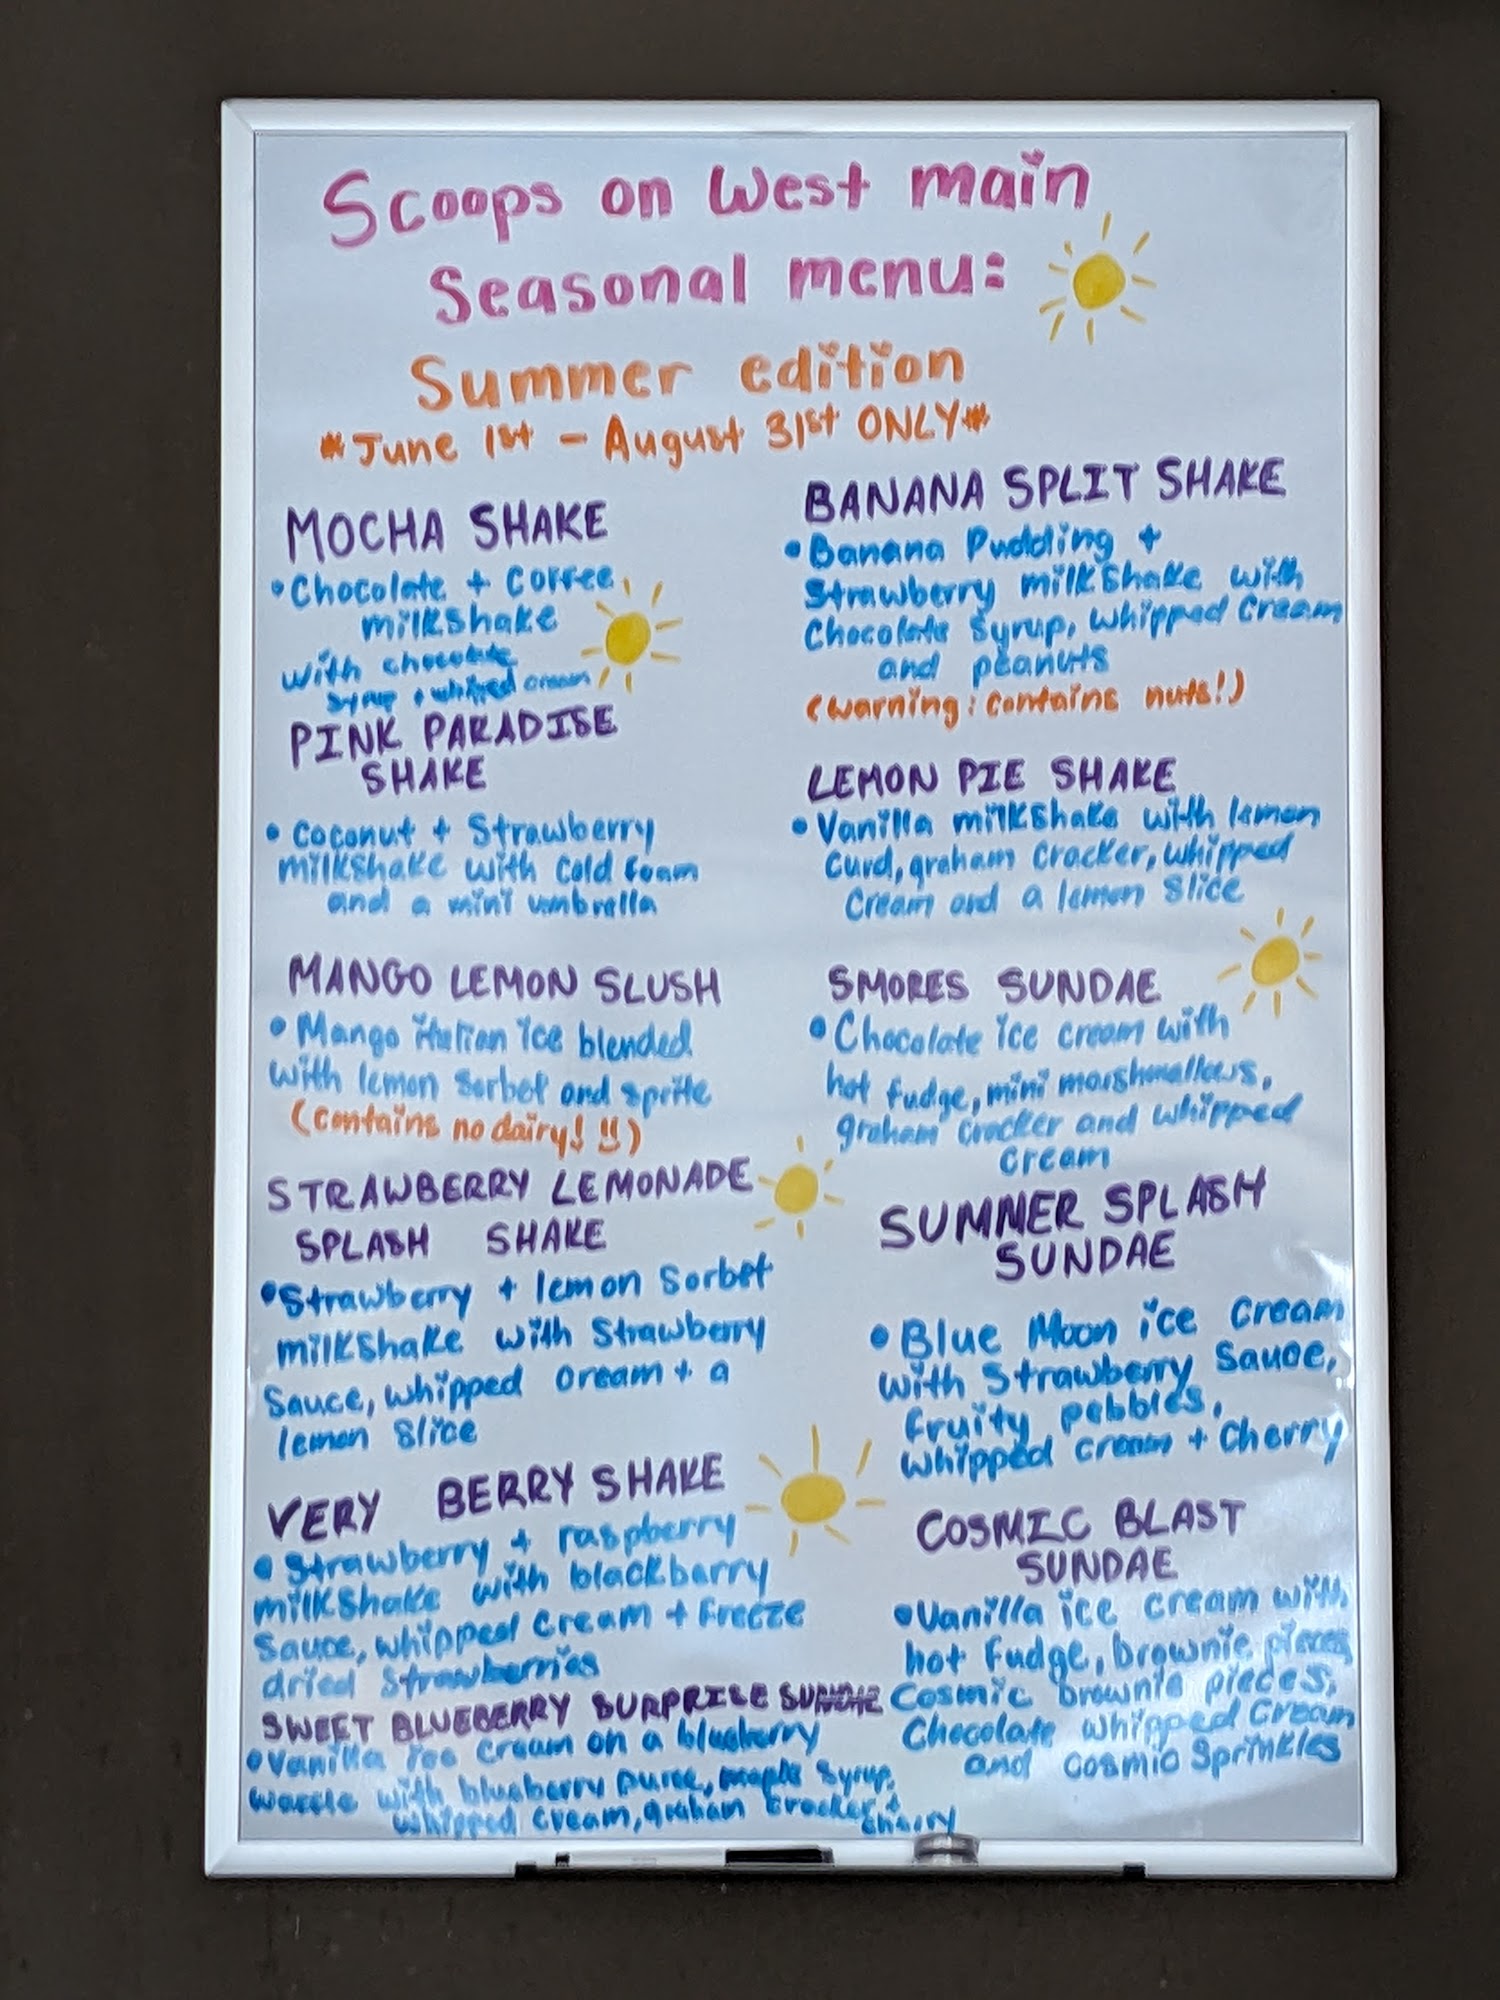 Scoops on West main
Seasonal menu:
Summer edition
*June 1st - August 31st ONLY*
MOCHA SHAKE
• Chocolate + Coffee
milkshake
with chocolate
syrup + whipped cream
PINK PARADISE
SHAKE
• Coconut + Strawberry
milkshake with Cold foam
and a mini umbrella
MANGO LEMON SLUSH
• Mango italian ice blended
with lemon sorbet and sprite
(contains no dairy! !!)
STRAWBERRY LEMONADE
SPLASH SHAKE
• Strawberry + lemon Sorbet
milkshake with Strawberry
Sauce, whipped cream + a
lemon Slice
VERY BERRY SHAKE
• Strawberry + raspberry
milkshake with blackbarry
Sauce, whipped cream + Freeze
dried Strawberries
SWEET BLUEBERRY SURPRISE SUNDAE
• Vanilla ice cream on a blueberry
waffle with blueberry puree, maple syrup,
whipped cream, graham cracker +
cherry
BANANA SPLIT SHAKE
• Banana Pudding +
Strawberry milkshake with
Chocolate Syrup, whipped cream
and peanuts
(warning: contains nuts!)
LEMON PIE SHAKE
• Vanilla milkshake with lemon
Curd, graham Cracker, whipped
Cream and a lemon Slice
SMORES SUNDAE
• Chocolate ice cream with
hot fudge, mini marshmallows,
graham cracker and whipped
cream
SUMMER SPLASH
SUNDAE
• Blue Moon ice Cream
with Strawberry Sauce,
fruity pebbles,
whipped cream + Cherry
COSMIC BLAST
SUNDAE
• Vanilla ice cream with
hot Fudge, brownie pieces
Cosmic brownie pieces,
Chocolate whipped Cream
and Cosmic Sprinkles